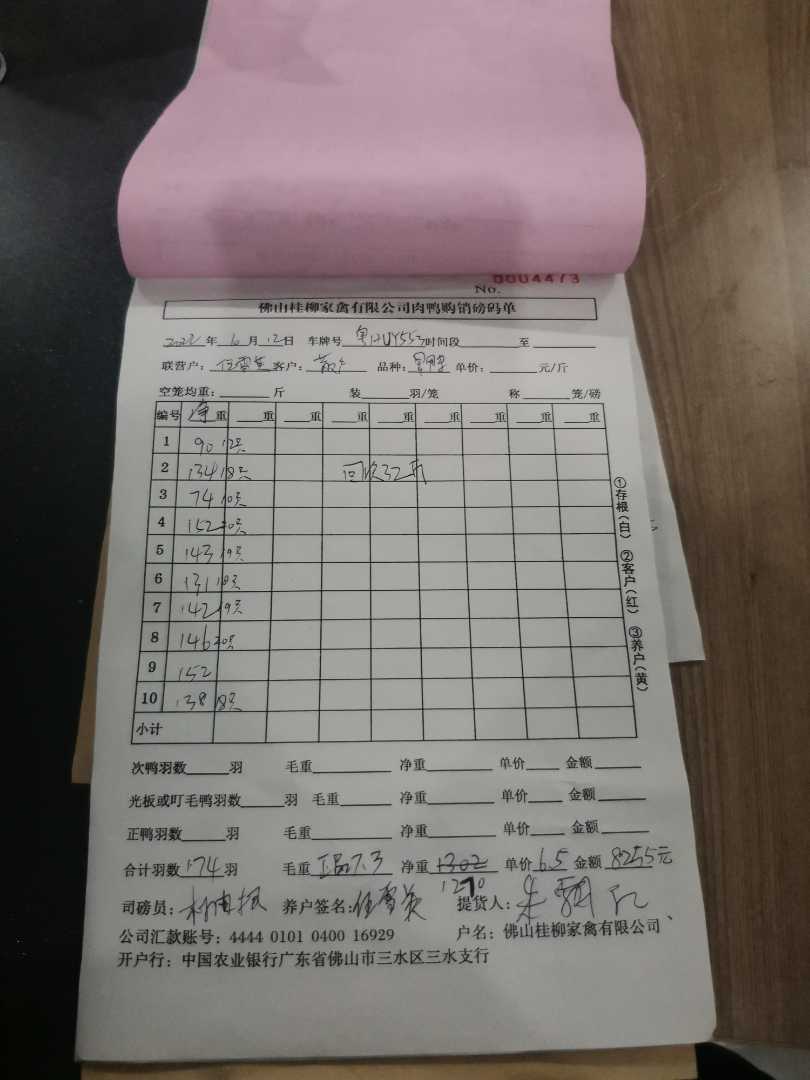 No. 0004473
佛山桂柳家禽有限公司肉鸭购销磅码单
年 6 月 12日 车牌号 时间段 至
联营户: 客户: 散户 品种: 单价: 元/斤
空笼均重: 斤 装 羽/笼 称 笼/磅
编号 净重 重 重 重 重 重 重 重 重
1 90 12只
2 134 18只 回收32斤
3 74 10只
4 152 20只
5 143 19只
6 131 18只
7 142 19只
8 146 20只
9 152
10 138 18只
小计
①存根(白) ②客户(红) ③养户(黄)
次鸭羽数 羽 毛重 净重 单价 金额
光板或叮毛鸭羽数 羽 毛重 净重 单价 金额
正鸭羽数 羽 毛重 净重 单价 金额
合计羽数 174 羽 毛重 正品7.3 净重 1302 单价 6.5 金额 8255元
1270
司磅员: 养户签名: 提货人:
公司汇款账号: 4444 0101 0400 16929 户名: 佛山桂柳家禽有限公司
开户行: 中国农业银行广东省佛山市三水区三水支行